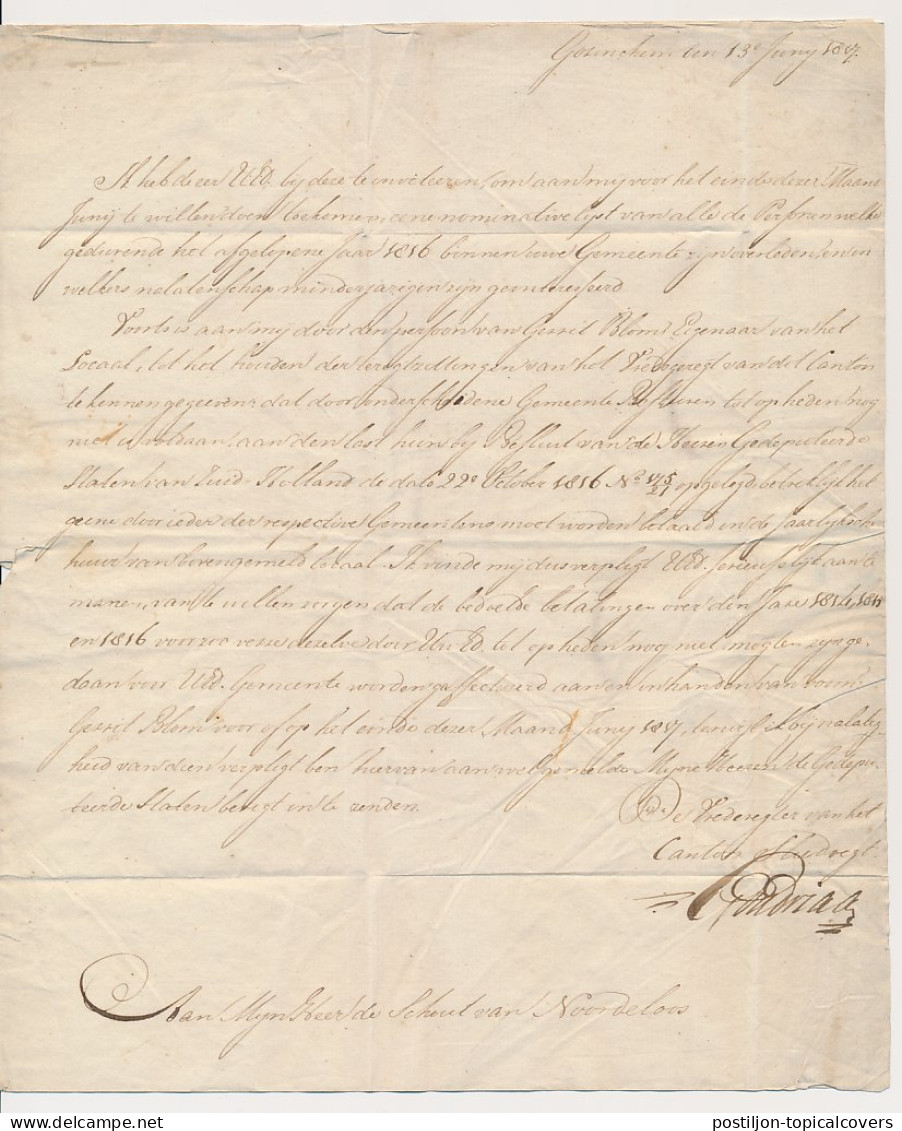 Gorinchem den 13e Juny 1817.
Ik heb de eer UEd. bij deze te inviteeren, om aan mij voor het einde dezer Maand
Junij te willen doen toekomen, eene nominative lijst van alle de Personen welke
gedurende het afgelopene Jaar 1816 binnen uwe Gemeente zijn overleden, en in
welkers nalatenschap minderjarigen zijn geinteresseerd
Voorts is aan mij door den persoon van Gerrit Blom Eigenaar van het
Locaal, tot het houden der teregtzittingen van het Vredegregt van dit Canton
te kennen gegeven, dat door onderscheidene Gemeente Besturen tot op heden nog
niet is voldaan, aan den last hun bij Besluit van de Heeren Gedeputeerde
Staten van Zuid-Holland de dato 22e October 1816 No opgelegd, betreklijk het
geene door ieder der respective Gemeentens moet worden betaald in de jaarlijksche
huur van bovengemeld locaal. Ik vinde mij dus verpligt UEd. serieuselijk aan te
manen, van te willen zorgen dat de bedoelde betalingen over den Jare 1814, 1815
en 1816 voor zoo verre dezelve door UwEd. tot op heden nog niet mogten zijn ge-
daan voor UEd. Gemeente worden geffectueerd aan en in handen van voorm:
Gerrit Blom voor of op het einde dezer Maand Junij 1817, terwijl ik bij nalatig-
heid van dien verpligt ben hiervan aan welgemelde Mijne Heeren de Gedepu-
teerde Staten berigt in te zenden.
De Vrederegter van het
Canton Sliedregt
Aan Mijn Heer de Schout van Noordeloos
postiljon-topicalcovers